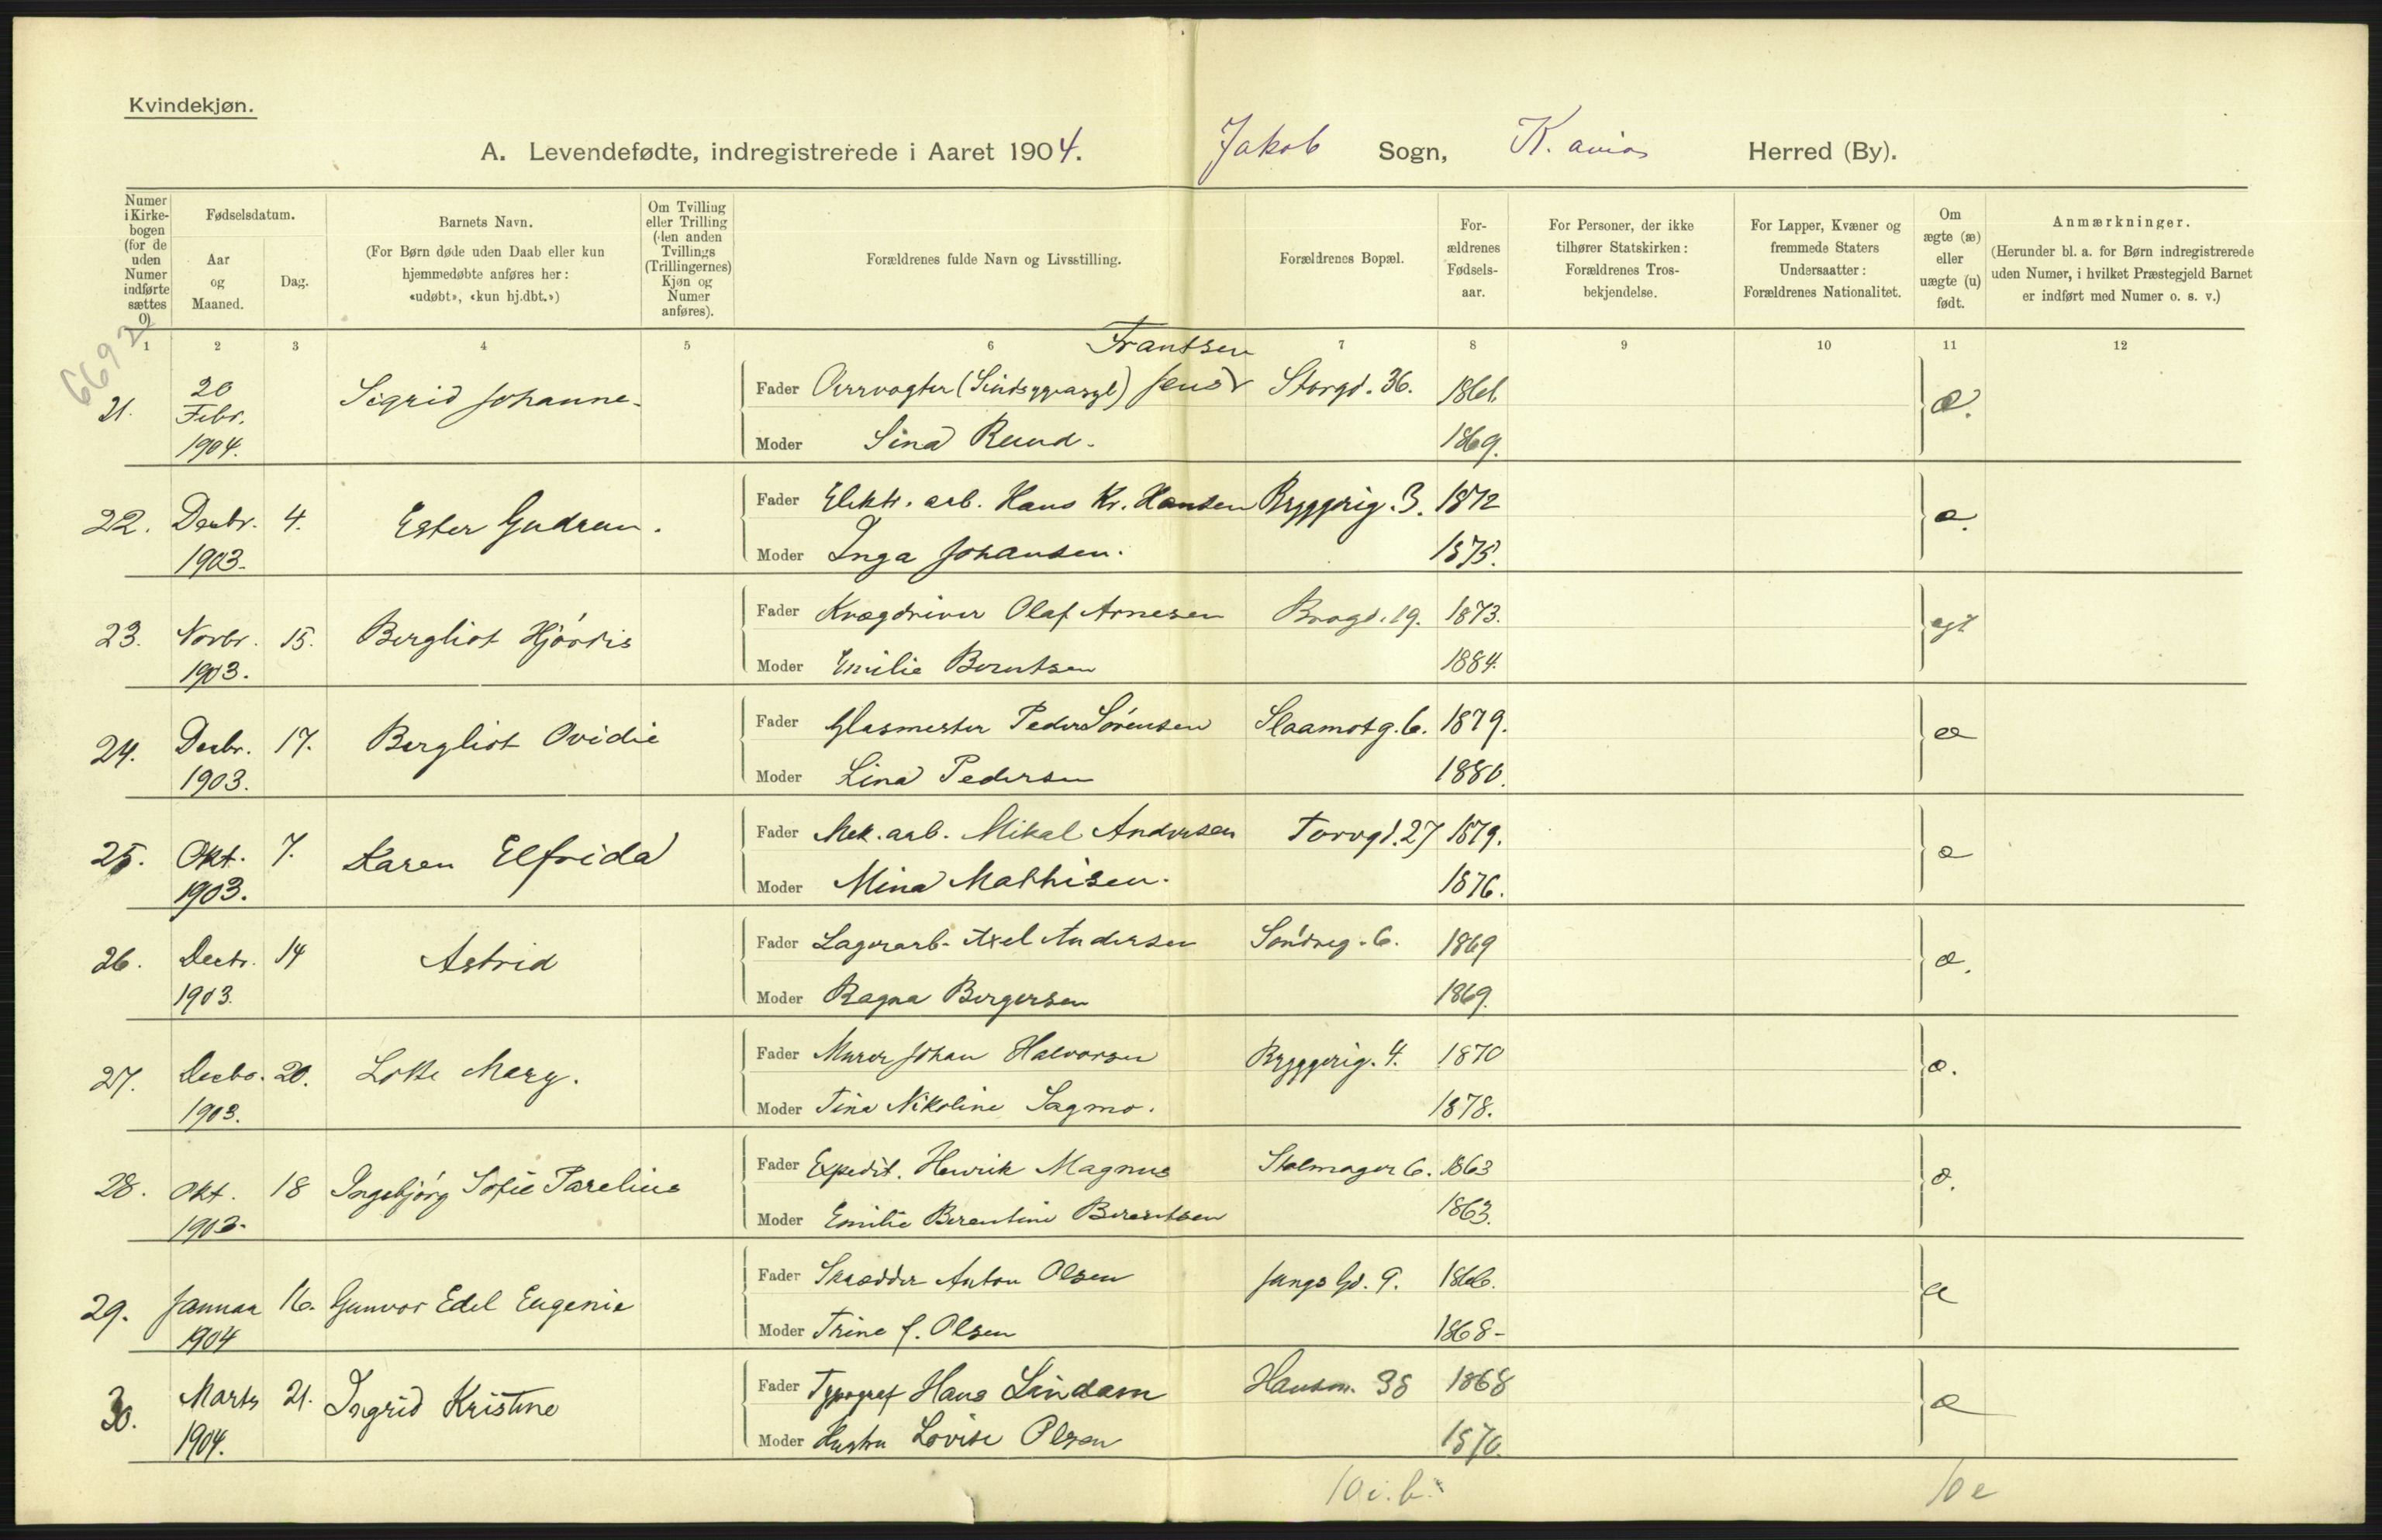 Kvindekjøn.
A. Levendefødte, indregistrerede i Aaret 1904. Jakob Sogn, K.ania Herred (By).
Numer i Kirkebogen (for de uden Numer indførte sættes 0)
Fødselsdatum.
Aar og Maaned.
Dag.
Barnets Navn.
(For Børn døde uden Daab eller kun hjemmedøbte anføres her: «udøbt», «kun hj.dbt.»)
Om Tvilling eller Trilling (den anden Tvillings (Trillingernes) Kjøn og Numer anføres).
Forældrenes fulde Navn og Livsstilling.
Forældrenes Bopæl.
Forældrenes Fødselsaar.
For Personer, der ikke tilhører Statskirken: Forældrenes Trosbekjendelse.
For Lapper, Kvæner og fremmede Staters Undersaatter: Forældrenes Nationalitet.
Om ægte (æ) eller uægte (u) født.
Anmærkninger.
(Herunder bl. a. for Børn indregistrerede uden Numer, i hvilket Præstegjeld Barnet er indført med Numer o. s. v.)
1 2 3 4 5 6 7 8 9 10 11 12
6692
Frantsen
21. 20 Febr. 1904. Sigrid Johanne. Fader (Sindsygeasyl) Jens Storgd. 36. 1861. æ.
Moder Sina Ruud. 1869.
22. Decbr. 4. 1903. Ester Gudrun. Fader Elektr. arb. Hans Kr. Hansen Bryggerig. 3. 1872 æ.
Moder Inga Johansen. 1875.
23. Novbr. 15. 1903. Bergliot Hjørdis Fader Kvægdriver Olaf Arnesen Brogd. 19. 1873. egt
Moder Emilie Berntsen 1884.
24. Decbr. 17. 1903. Bergliot Ovidie Fader Glasmester Peder Sørensen Slaamotg. 6. 1879. æ
Moder Lina Pedersen 1880.
25. Okt. 7. 1903. Karen Elfrida Fader Mek. arb. Mikal Andersen Torvgd. 27 1879. æ
Moder Mina Mathisen. 1876.
26. Decbr. 14 1903. Astrid Fader Lagerarb. Axel Andersen Søndreg. 6. 1869 æ.
Moder Ragna Bergersen 1869.
27. Decbr. 20. 1903. Lotte Mary. Fader Murer Johan Halvorsen Bryggerig. 4. 1870 æ.
Moder Tina Nikoline Sagmo. 1878.
28. Okt. 18 1903. Ingebjørg Sofie Pareline Fader Expedit. Henrik Magnus Stolmager 6. 1863 æ.
Moder Emilie Berentine Berentsen 1863.
29. Januar 16. 1904 Gunvor Edel Eugenie Fader Skrædder Anton Olsen Jungs Gd. 9. 1866. æ
Moder Trine J. Olsen 1868-
30. Marts 21. 1904. Ingrid Kristine Fader Typograf Hans Lindam Hausm. 38 1868 æ
Moder Hustru Lovise Olsen 1870.
10 i. b. 10 e